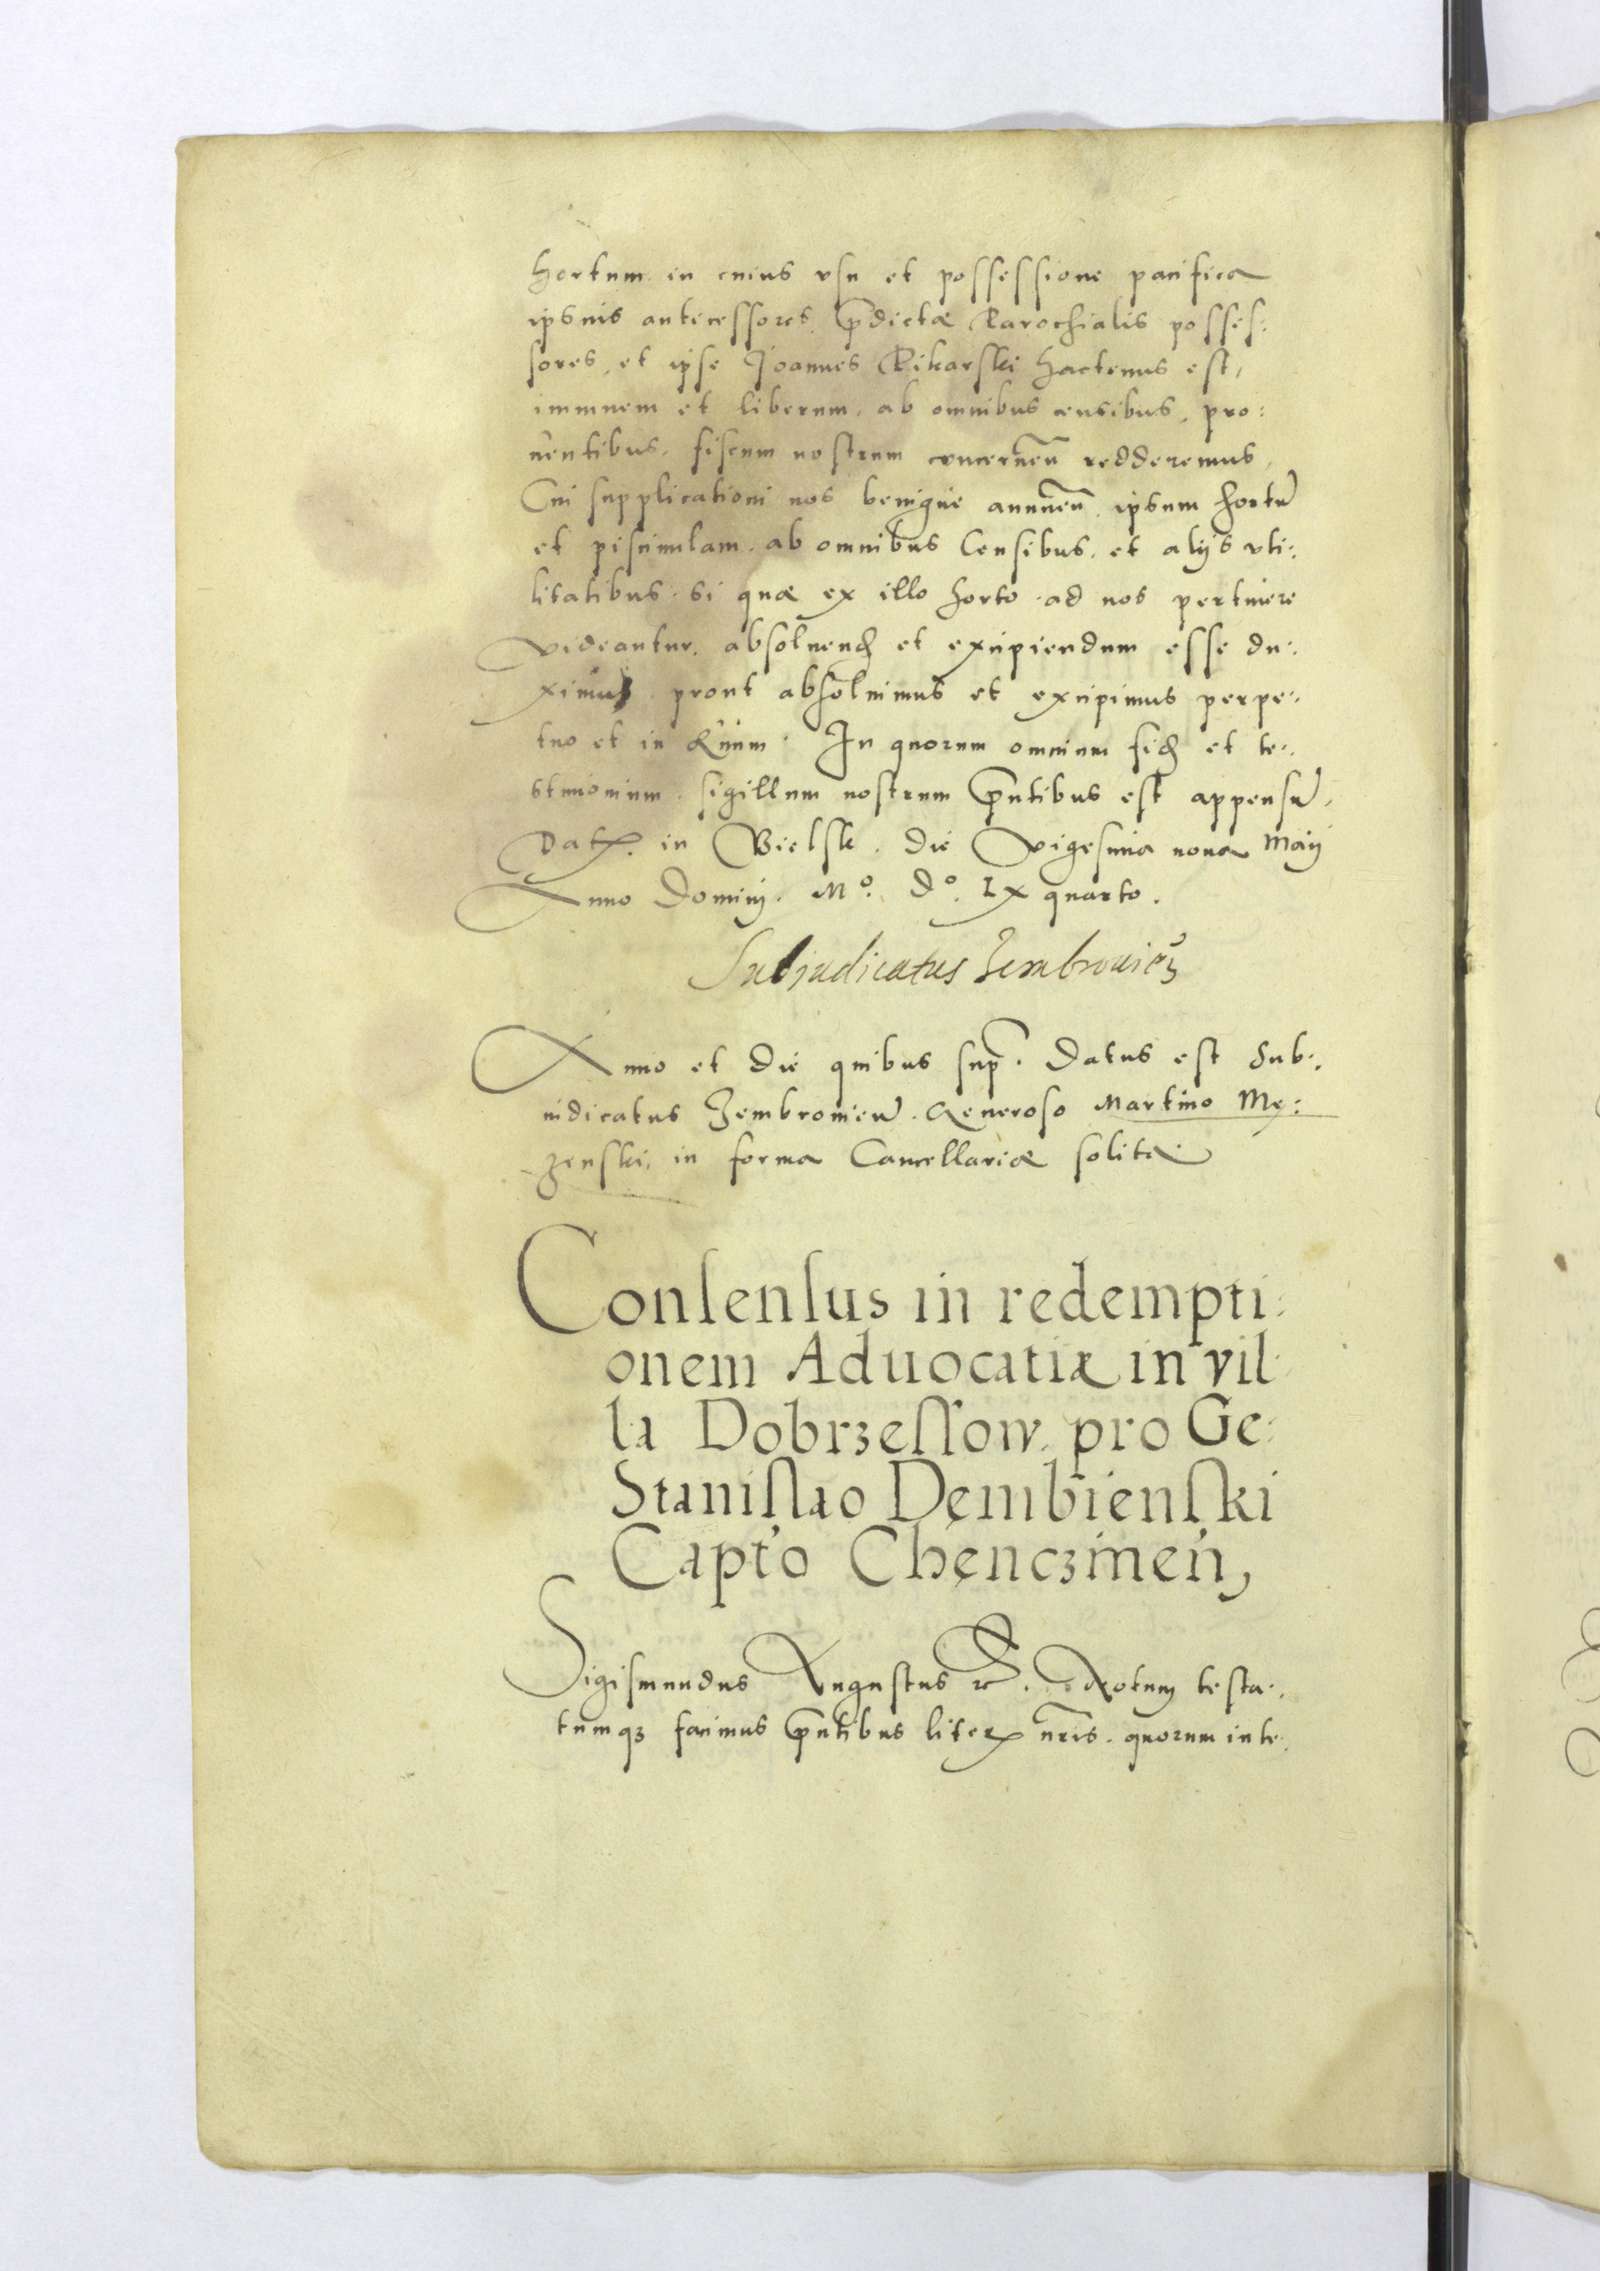 hortum in cuius vsu et possessione pacifica
ipsius antecessores p̄dictæ Parochialis posses:
sores, et ipse Joannes Pikarski hactenus est,
immunem et liberum, ab omnibus censibus, pro:
uentibus, fiscum nostrum concerneñ redderemus,
Cui supplicationi nos benigne annueñ ipsum hortū
et piscinulam, ab omnibus Censibus, et alijs vti:
litatibus, si quæ ex illo horto ad nos pertinere
videantur, absoluend et excipiendum esse du:
ximus, prout absoluimus et excipimus perpe:
tuo et in æuum. In quorum omnium fid et te:
stimonium, sigillum nostrum p̄ntibus est appensū.
Dat. in Bielsk. die vigesima nona Maij
Anno Domini. Mº. Dº. LX quarto.
Subiudicatus Zembrouieñ
Anno et die quibus sup̄. Datus est Sub:
iudicatus Zembrouieñ. Generoso Martino Mę:
zenski, in forma Cancellariæ solita
Consensus in redempti:
onem Aduocatiæ in vil:
la Dobrzessow. pro Ge:
Stanislao Dembienski
Capt'o Chęnczineñ,
Sigismundus Augustus R. Notum testa:
tumqȝ facimus p̄ntibus liter nr̄is. quorum inte: